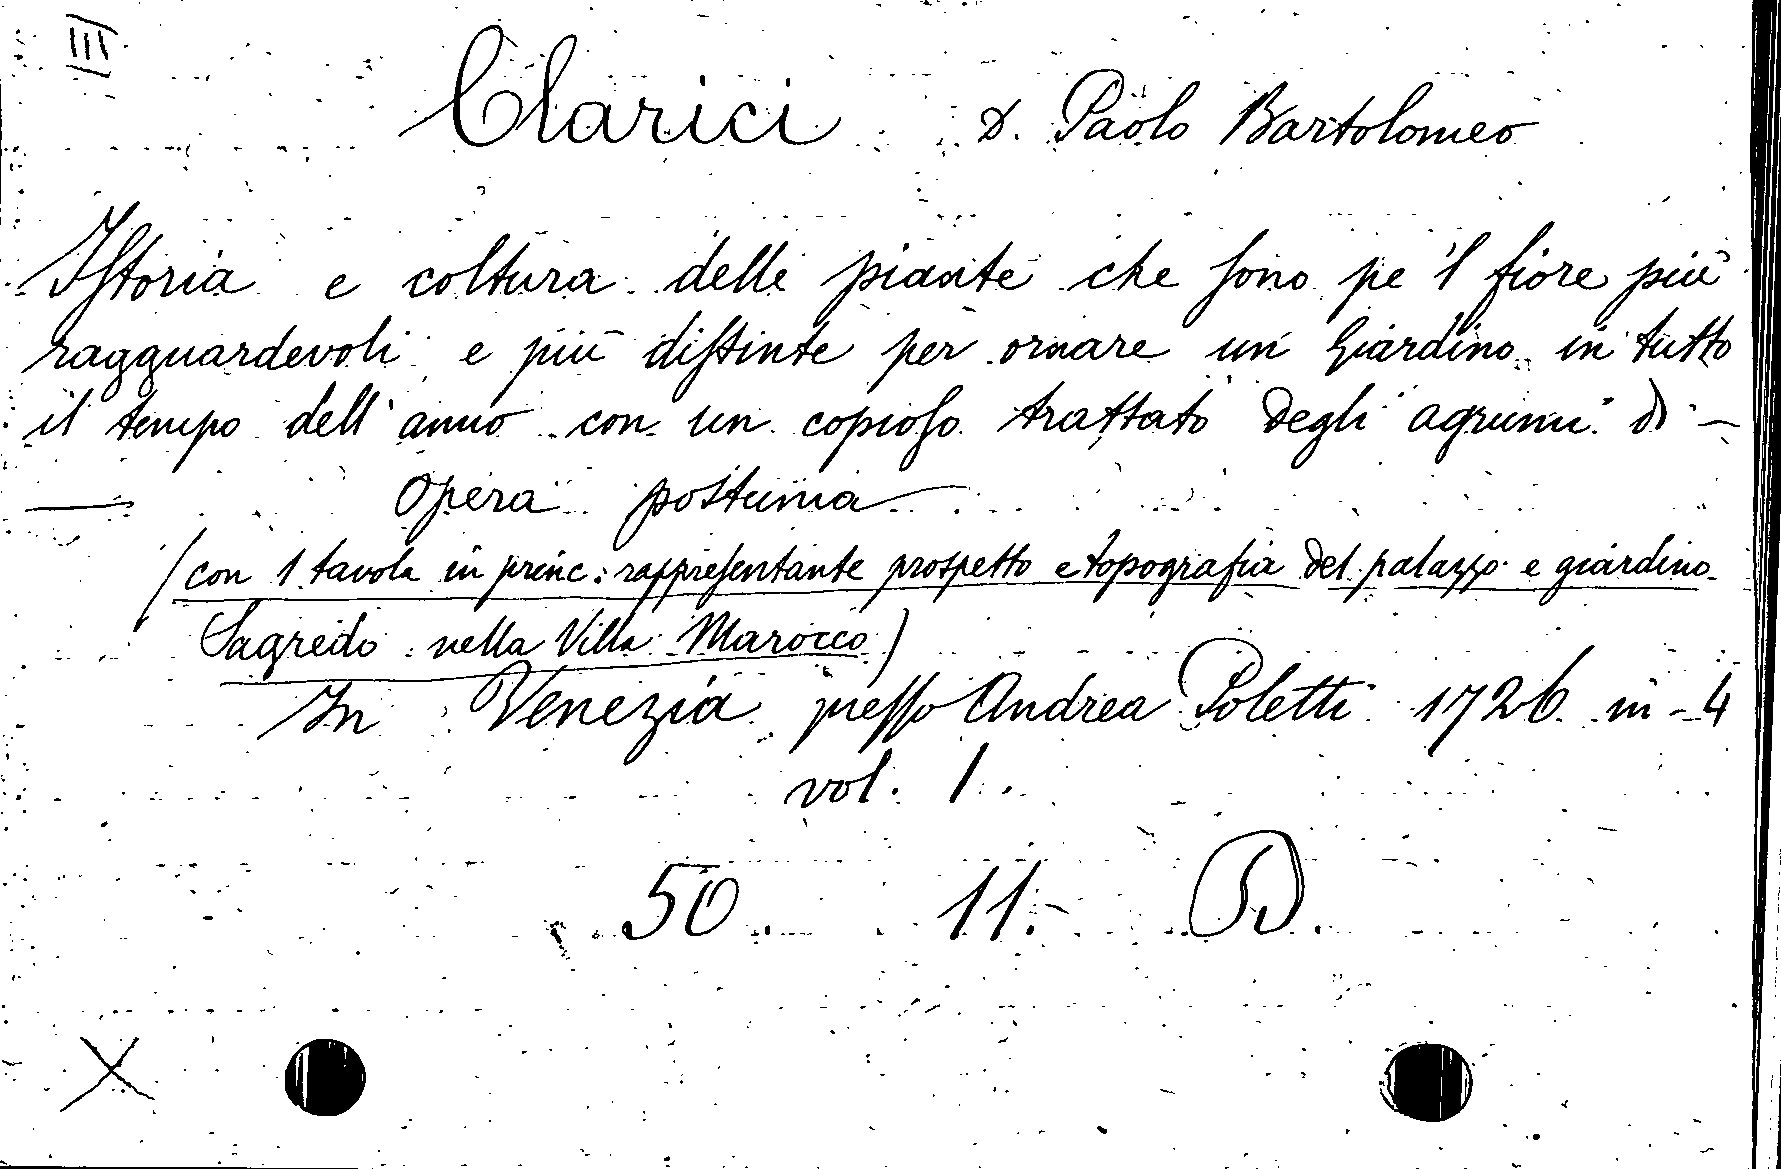 III
Clarici D. Paolo Bartolomeo
Istoria e coltura delle piante che sono pe 'l fiore più
ragguardevoli e più distinte per ornare un Giardino in tutto
il tempo dell' anno con un copioso trattato degli agrumi di —
— Opera postuma —
(con 1 tavola in princ: rappresentante prospetto e topografia del palazzo e giardino
Sagredo nella Villa Marocco)
In Venezia presso Andrea Poletti 1726 in-4
vol. 1.
50. 11.-
X